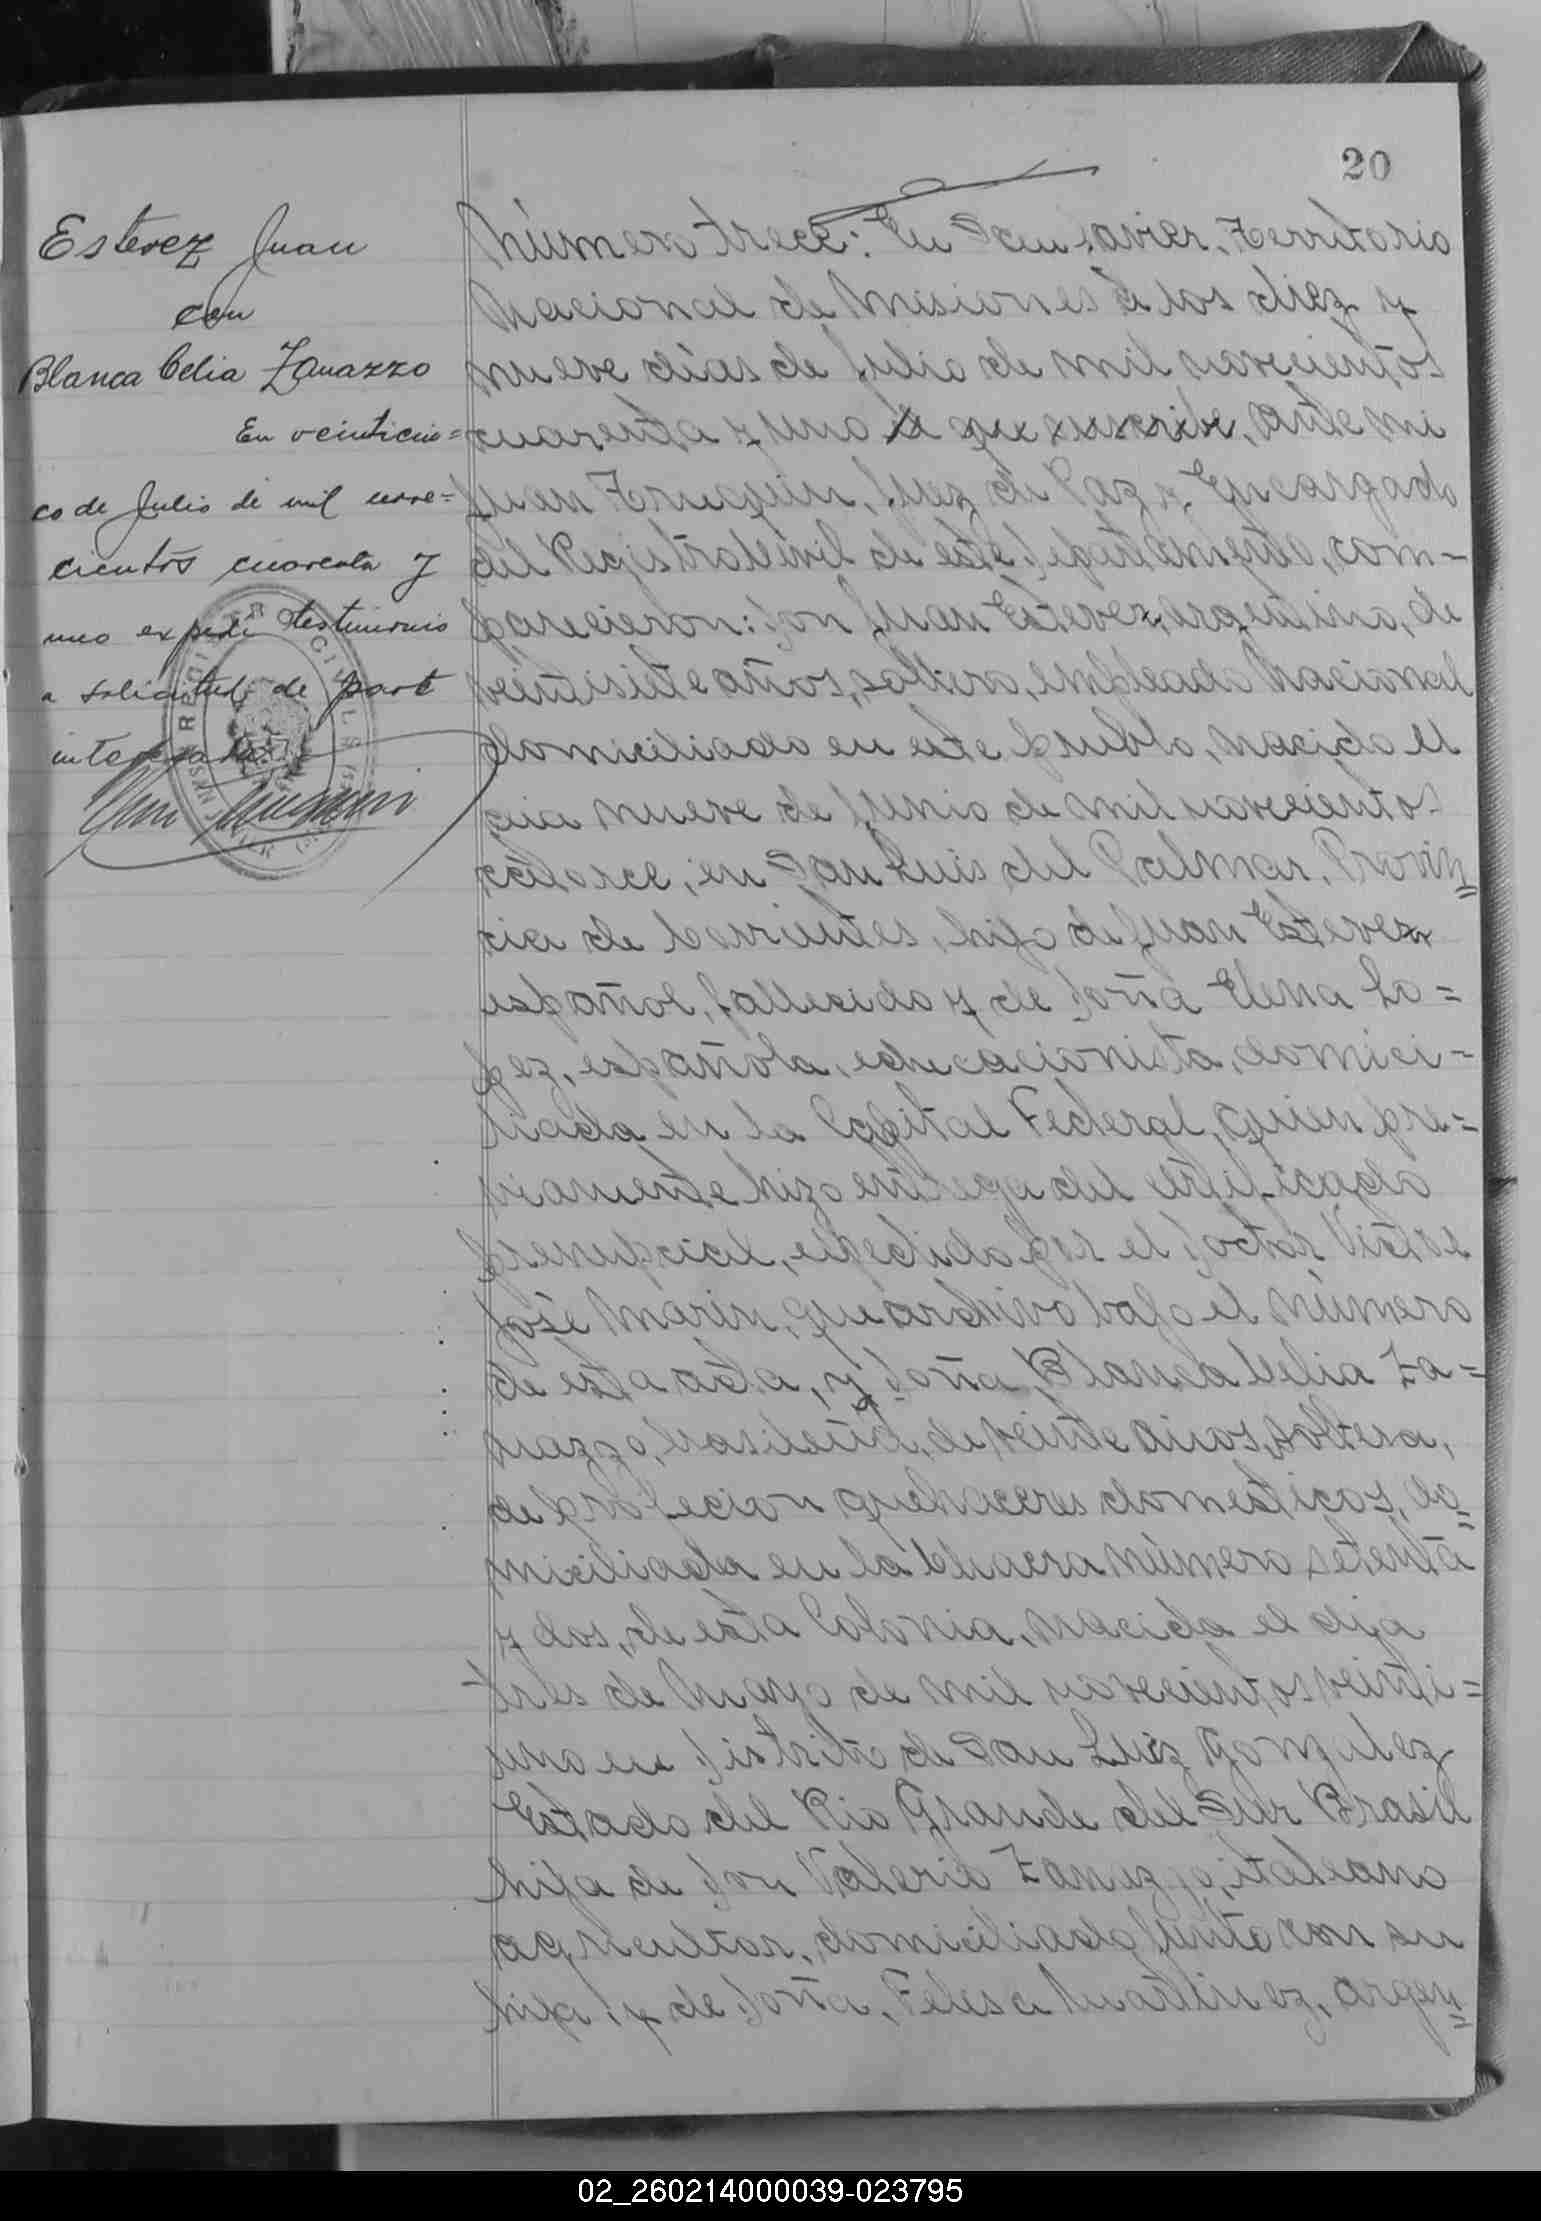 20
Estevez Juan
con
Blanca Celia Zanazzo
En veinticin=
co de Julio de mil nove=
cientos cuarenta y
uno expedi testimonio
a solicitud de part
interesada
REGISTR CIVIL
Número trece: En San Javier, Territorio
Nacional de Misiones á los diez y
nueve días de Julio de mil novecientos
cuarenta y uno el que suscribe, ante mi
Juan, Juez de Paz y Encargado
del Registro Civil de este Departamento, com-
parecieron: Don Juan Estevez, argentino, de
veintisiete años, soltero, empleado Nacional
domiciliado en este pueblo, nacido el
dia nueve de Junio de mil novecientos
catorce, en San Luis del Palmar, Provin=
cia de Corrientes, hijo de Juan Estevez
español, fallecido y de Doña Elena Lo=
pez, española, educacionista, domici=
liada en la Capital Federal, quien pre=
viamente hizo entrega del certificado
prenupcial, expedido por el Doctor
José Marin, que archivo bajo el número
de esta acta, y Doña Blanca Celia Za=
nazzo, brasileña, de veinte años, soltera,
de profecion quehaceres domesticos, do=
miciliada en la Chacra número setenta
y dos, de esta Colonia, nacida el dia
tres de Mayo de mil novecientos veinti=
uno en Distrito de San Luiz Gonzalez
Estado del Rio Grande del Sur Brasil
hija de Don Valerio Zanazzo, italeano
agricultor, domiciliado junto con su
hija y de Doña, Felesa Martinez, argen=
02_260214000039-023795